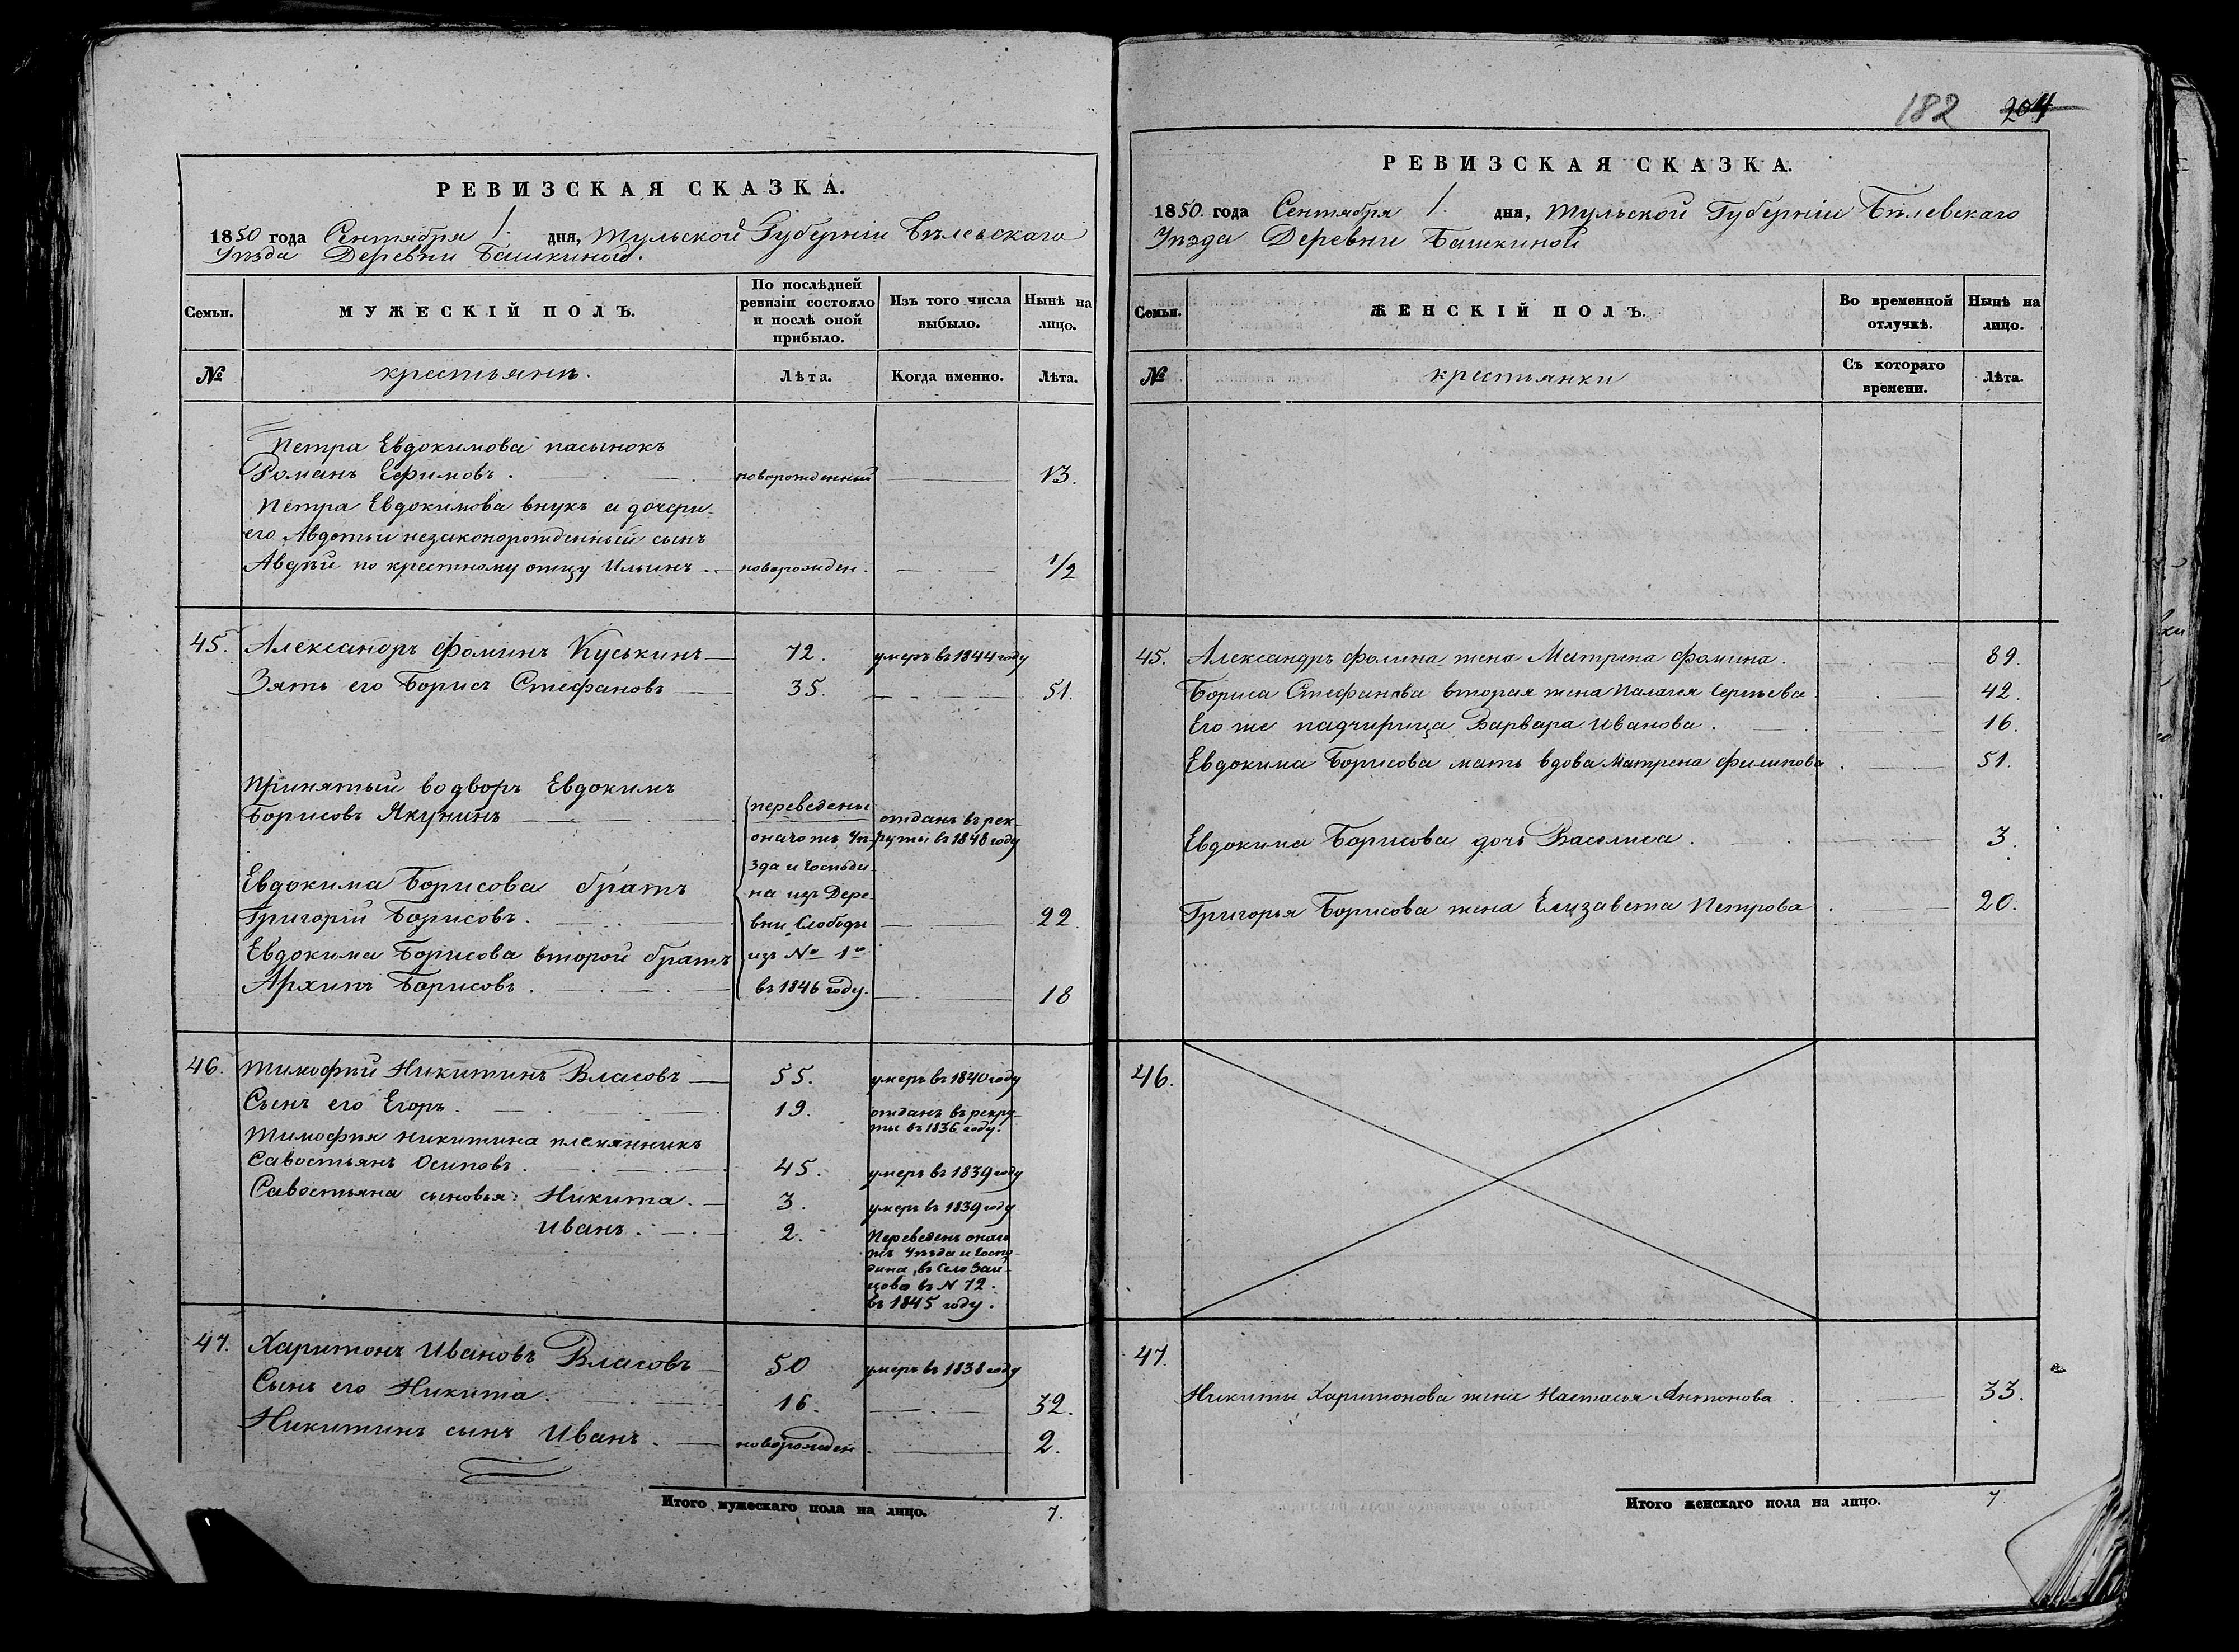 РЕВИЗСКАЯ СКАЗКА.
1850 года Сентября 1. дня, Тульской Губерніи Бѣлевскаго
Уѣзда Деревни Башкиной.
Семьи.
МУЖЕСКІЙ ПОЛЪ.
По послѣдней ревизіи состояло и послѣ оной прибыло.
Изъ того числа выбыло.
Нынѣ на лицо.
№ крестьянъ. Лѣта. Когда именно. Лѣта.
Петра Евдокимова пасынокъ
Романъ Ефимовъ. новорожденный 13.
Петра Евдокимова внукъ а дочери
его Авдотьи незаконорожденный сынъ
Авдѣй по крестному отцу Ильинъ новорожден. 1/2
45. Александръ Фоминъ Куськинъ 72. умеръ въ 1844 году
Зять его Борисъ Стефановъ 35. 51.
Принятый во дворъ Евдокимъ
Борисовъ Якунинъ
переведены
онаго жъ Уѣ-
зда и Господи-
на изъ Дере-
вни Слободы
изъ № 1го
въ 1846 году.
отданъ въ рек-
руты въ 1848 году
Евдокима Борисова братъ
Григорій Борисовъ. 22.
Евдокима Борисова второй братъ
Архипъ Борисовъ. 18
46. Тимофѣй Никитинъ Власовъ 55. умеръ въ 1840 году
Сынъ его Егоръ. 19. отданъ въ рекру-
ты въ 1836 году.
Тимофѣя Никитина племянникъ
Савостьянъ Осиповъ. 45. умеръ въ 1839 году
Савостьяна сыновья: Никита. 3. умеръ въ 1839 году
Иванъ. 2. Переведенъ онаго
жъ Уѣзда и Госпо-
дина, въ Село
въ N 72.
въ 1845 году.
47. Харитонъ Ивановъ Власовъ 50 умеръ въ 1838 году
Сынъ его Никита. 16. 32.
Никитинъ сынъ Иванъ. новорожден 2.
Итого мужескаго пола на лицо. 7.
182 204
РЕВИЗСКАЯ СКАЗКА.
1850. года Сентября 1. дня, Тульской Губерніи Бѣлевскаго
Уѣзда Деревни Башкиной
Семьи.
ЖЕНСКІЙ ПОЛЪ.
Во временной отлучкѣ.
Нынѣ на лицо.
№ крестьянки Съ котораго времени. Лѣта.
45. Александръ Фомина жена Матрена Фомина. 69.
Бориса Стефанова вторая жена Палагея Сергѣева 42.
Его же падчирица Варвара Иванова. 16
Евдокима Борисова мать вдова Матрена Филипова 51.
Евдокима Борисова дочь Василиса. 3.
Григорья Борисова жена Елизавета Петрова 20.
46.
47.
Никиты Харитонова жена Настасья Антонова 33.
Итого женскаго пола на лицо. 7.